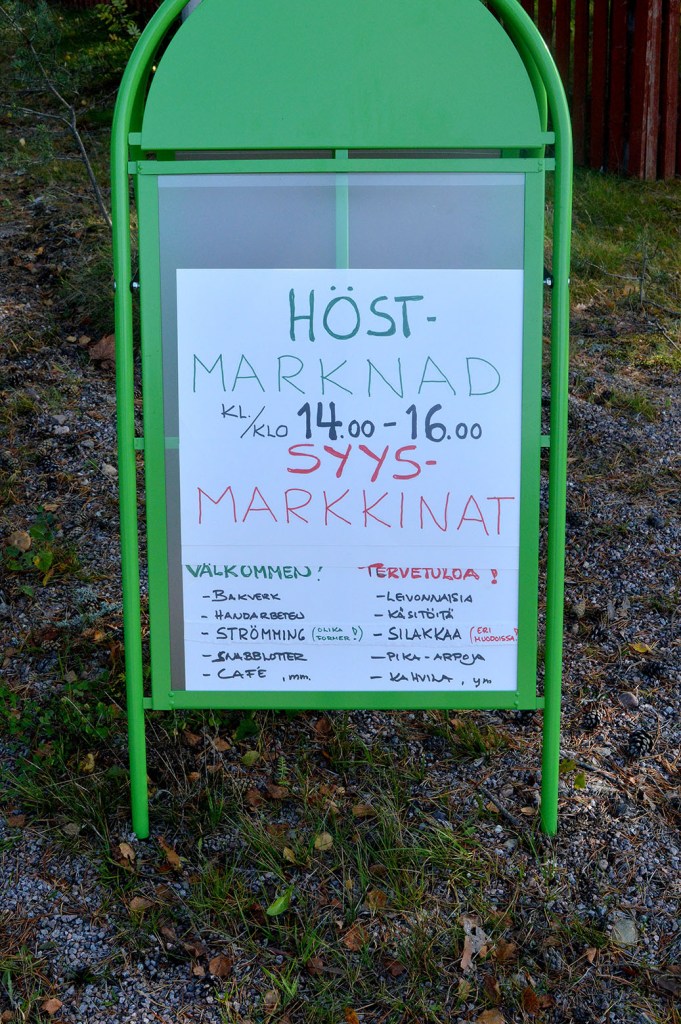 HÖST-
MARKNAD
KL./KLO 14.00 - 16.00
SYYS-
MARKKINAT
VÄLKOMMEN!
- BAKVERK
- HANDARBETEN
- STRÖMMING (OLIKA FORMER!)
- SNABBLOTTER
- CAFÉ, mm.
TERVETULOA!
- LEIVONNAISIA
- KÄSITÖITÄ
- SILAKKAA (ERI MUODOISSA!)
- PIKA-ARPOJA
- KAHVILA, ym